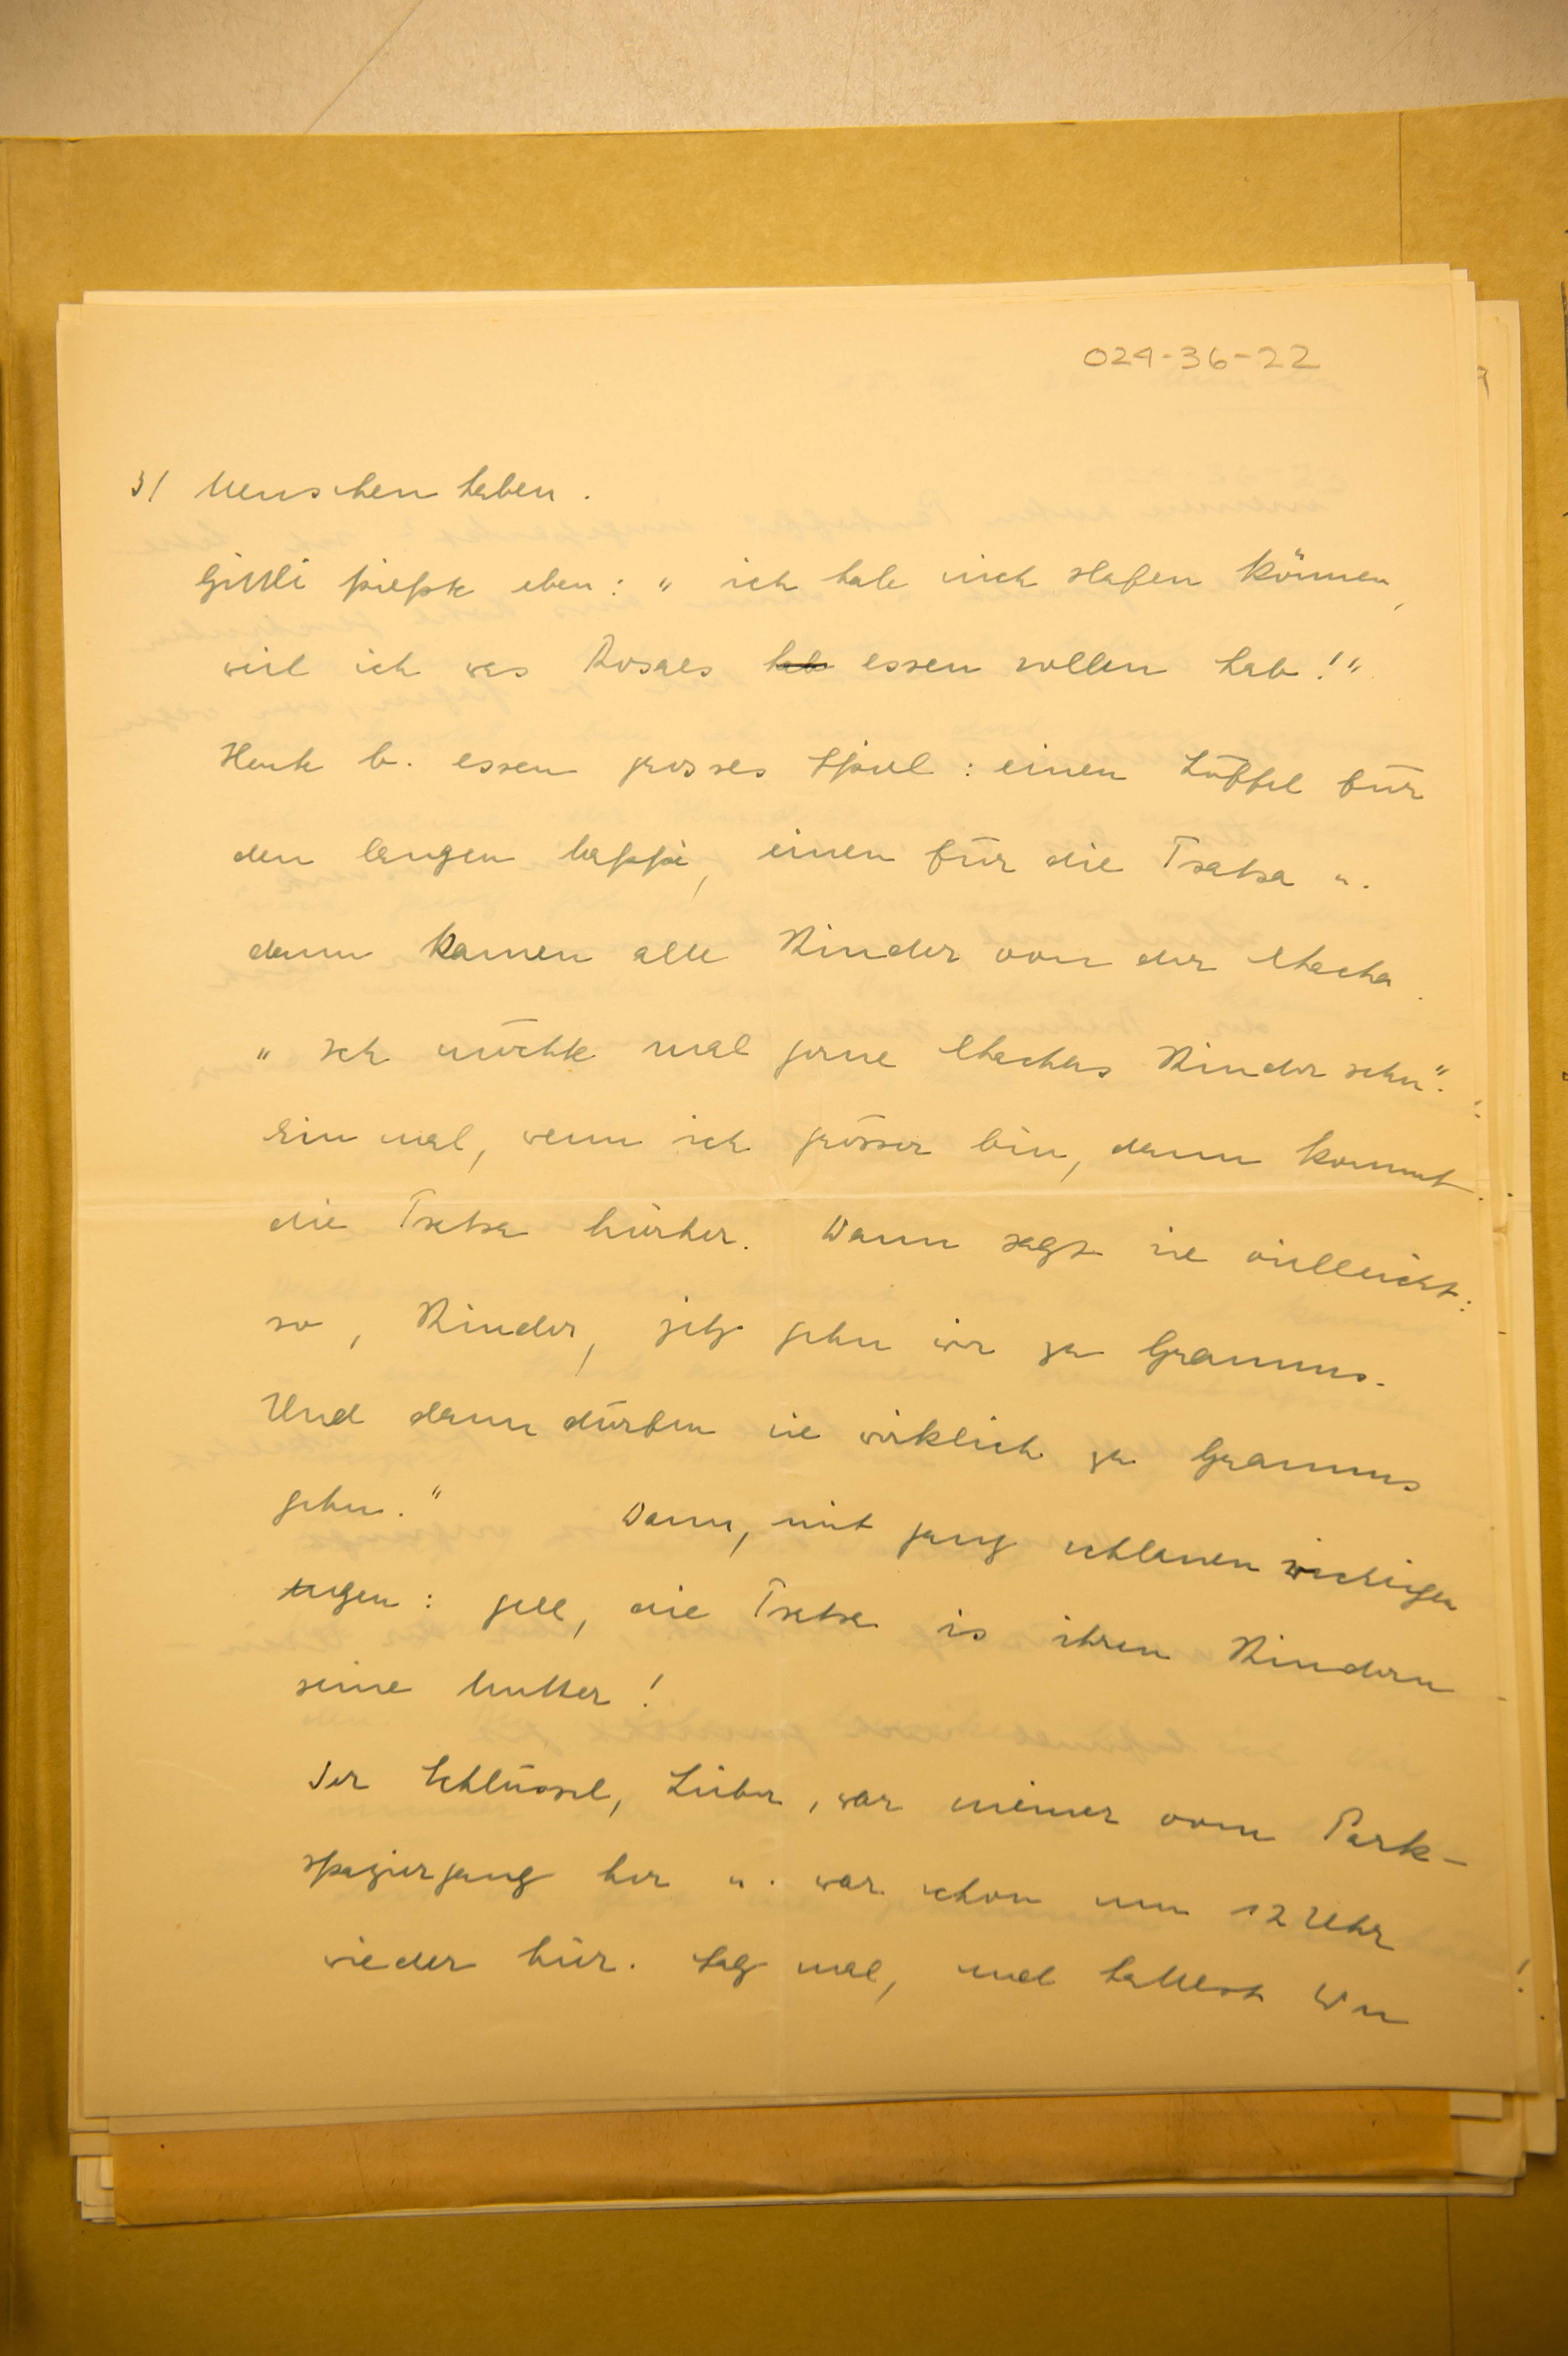 024-36-22
3/ Menschen haben.
Gittli piepst eben: " ich hab nich slafen können,
weil ich was Rosaes hab essen wollen hab!"
Heute b. essen grosses Spiel: einen Löffel für
den langen Happi, einen für die Tsatsa u.
dann kamen alle Kinder von der Chacha.
" Ich möchte mal gerne Chachas Kinder sehn".
Ein mal, wenn ich grösser bin, dann kommt
die Tsatsa hierher. Dann sagt sie vielleicht:
so, Kinder, jetz gehn wir zu Gramms.
Und dann dürfen sie wirklich zu Gramms
gehn." Dann, mit ganz schlauen wichtigen
Augen: gell, die Tsatsa is ihren Kindern
seine Mutter!
Der Schlüssel, Lieber, war meiner vom Park-
spaziergang her u. war schon um 12 Uhr
wieder hier. Sag mal, und hattest Du